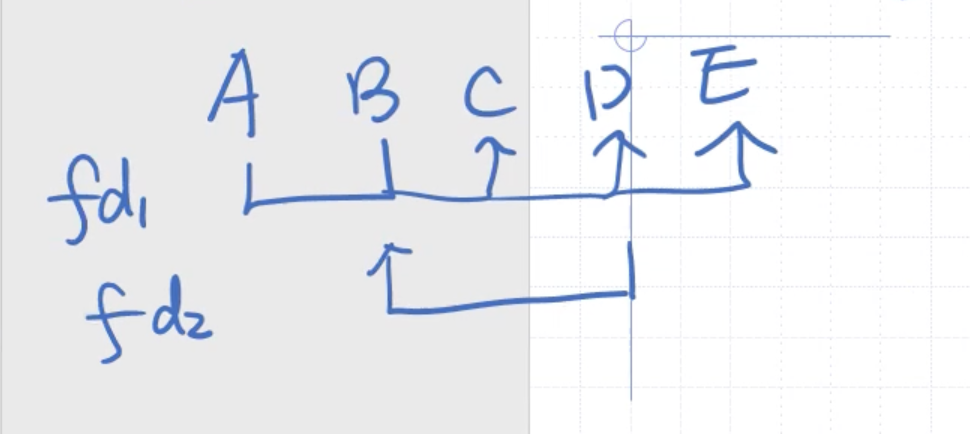 A B C D E
fd₁
fd₂